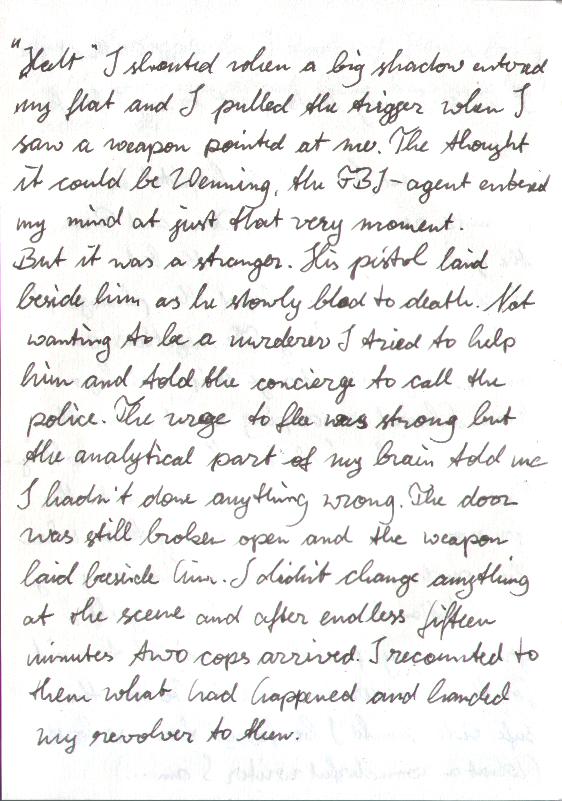 "Halt" I shouted when a big shadow entered
my flat and I pulled the trigger when I
saw a weapon pointed at me. The thought
it could be Wenning, the FBI-agent entered
my mind at just that very moment.
But it was a stranger. His pistol laid
beside him as he slowly bled to death. Not
wanting to be a murderer I tried to help
him and told the concierge to call the
police. The urge to flee was strong but
the analytical part of my brain told me
I hadn't done anything wrong. The door
was still broken open and the weapon
laid beside him. I didn't change anything
at the scene and after endless fifteen
minutes two cops arrived. I recounted to
them what had happened and handed
my revolver to them.